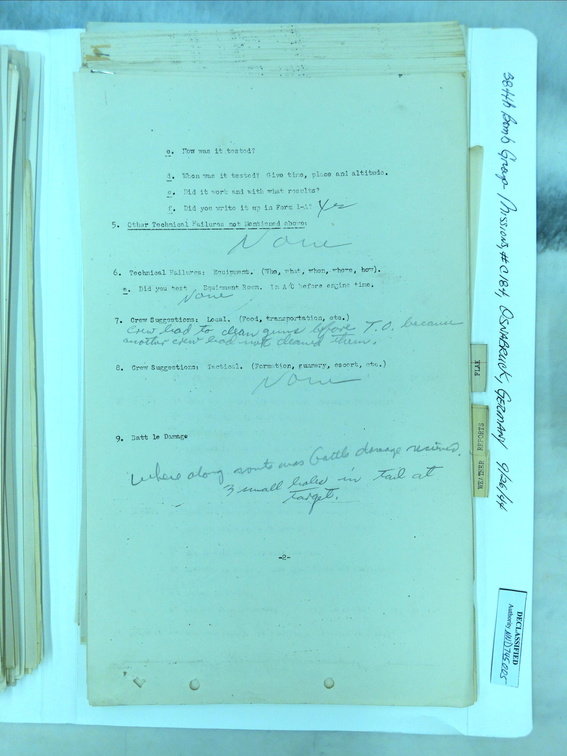 c. How was it tested?
d. When was it tested? Give time, place and altitude.
e. Did it work and with what results?
f. Did you write it up in Form 1-A? Yes
5. Other Technical Failures not Mentioned above:
None
6. Technical Failures: Equipment. (Who, what, when, where, how).
a. Did you test Equipment Room. In A/C before engine time.
None
7. Crew Suggestions: Local. (Food, transportation, etc.)
Crew had to clean guns before T.O. because
another crew had not cleaned them.
8. Crew Suggestions: Tactical. (Formation, gunnery, escort, etc.)
None
9. Battle Damage
Where along route was battle damage received.
3 small holes in tail at
target.
-2-
384th Bomb Group - Missions, # 184, OSNABRUCK, GERMANY 9/26/44
FLAK
WEATHER REPORTS
DECLASSIFIED
Authority NND 745005